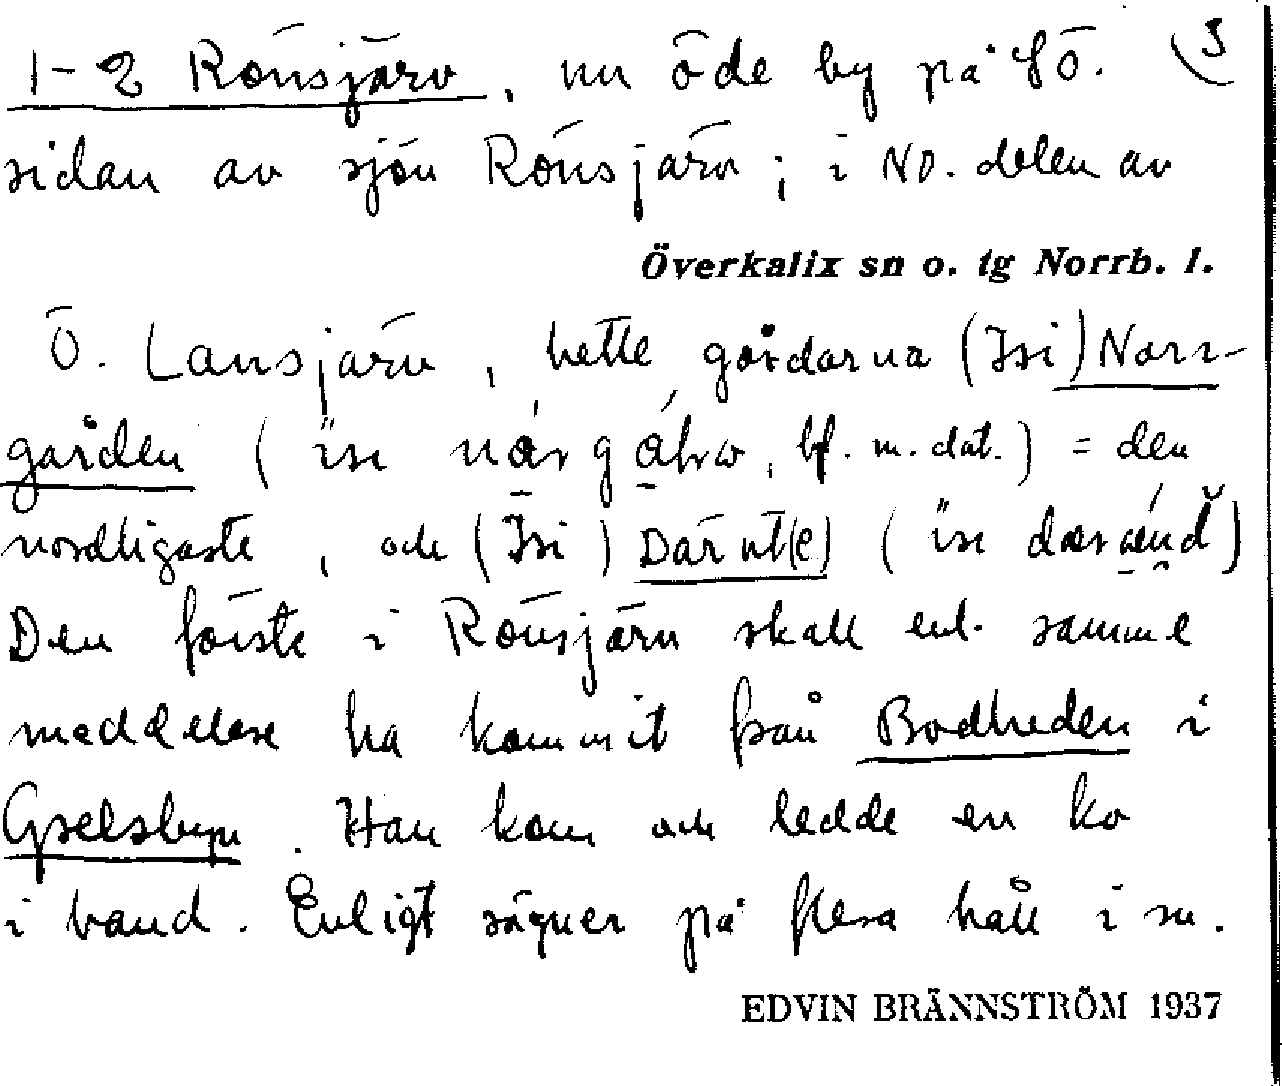 1-2 Rönsjärv, nu öde by på SÖ. 3
sidan av sjön Rönsjärv; i NO. delen av
Överkalix sn o. tg Norrb. l.
Ö. Lansjärv, hette gårdarna (Isi) Norr-
gården ( bf. m. dat.) = den
nordligaste, och (Isi) Därut(e)
Den förste i Rönsjärv skall enl. samme
meddelare ha kommit från Bodheden i
Gyselsbyn. Han kom och ledde en ko
i band. Enligt sägner på flera håll i sn.
EDVIN BRÄNNSTRÖM 1937